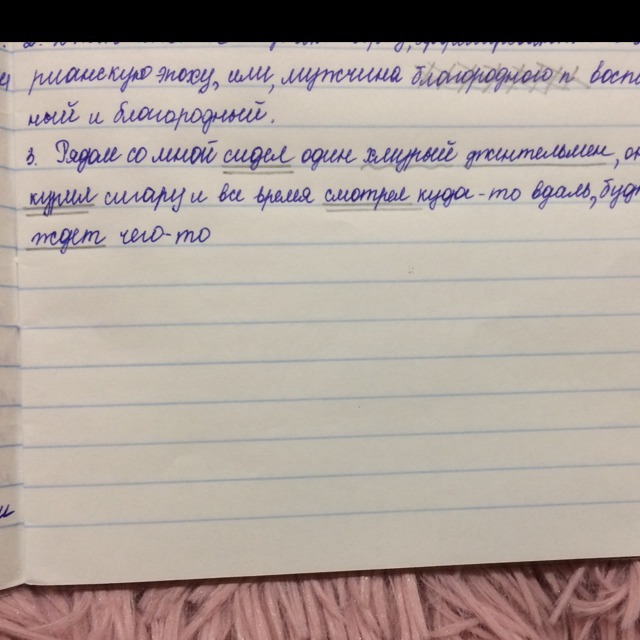 рианскую эпоху, или, мужчина благородного и воспи
ный и благородный.
3. Рядом со мной сидел один хмурый джентельмен, он
курил сигару и все время смотрел куда-то вдаль, будт
ждет чего-то